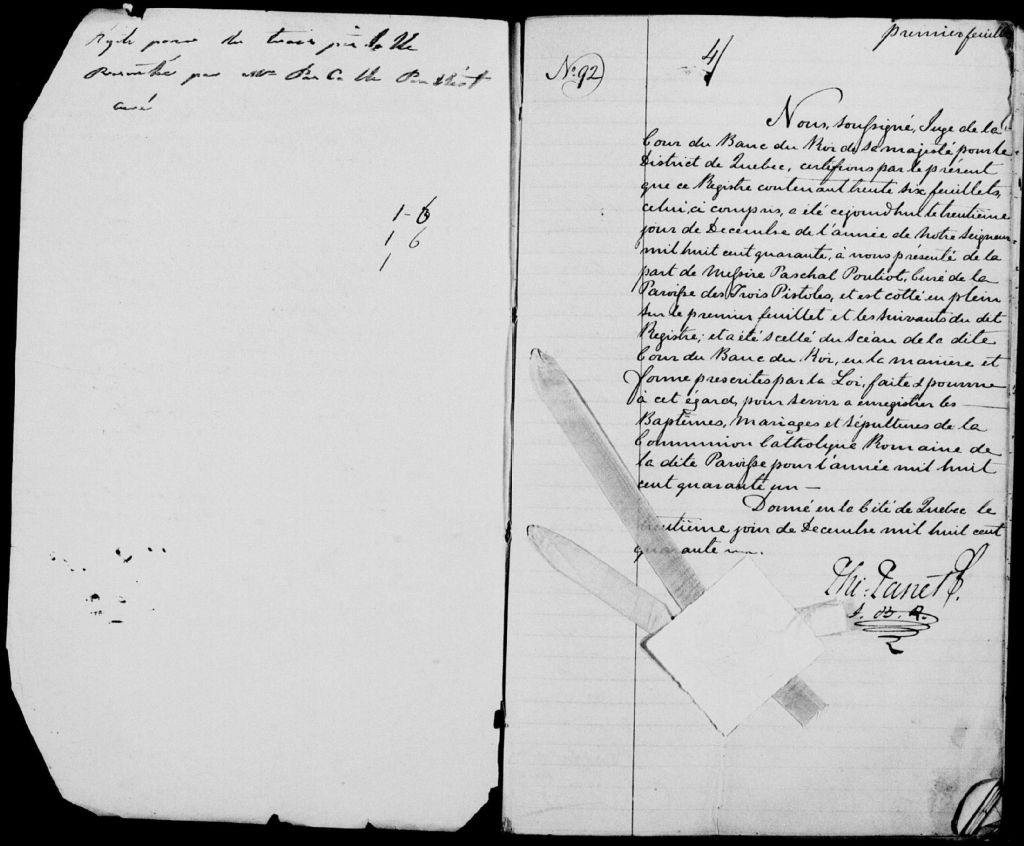 pour
par
curé
1 - 6
1 6
1
premier feuillet
4/
No. 92
Nous, soussigné, Juge de la
Cour du Banc du Roi de sa majesté pour le
District de Quebec, certifions par le présent
que ce Registre contenant trente six feuillets,
celui ci compris, a été cejourd'hui le trentième
jour de Decembre de l'année de notre Seigneur
mil huit cent quarante, à nous présenté de la
part de Messire Paschal Pouliot, Curé de la
Paroisse des Trois Pistoles, et est cotté en plein
sur le premier feuillet et les suivants du dit
Registre; et a été scellé du Sceau de la dite
Cour du Banc du Roi, en la manière et
forme prescrites par la Loi, faite & pourvue
à cet égard, pour servir a enregistrer les
Baptêmes, Mariages et Sépultures de la
Communion Catholique Romaine de
la dite Paroisse pour l'année mil huit
cent quarante un —
Donné en la Cité de Quebec le
trentième jour de Decembre mil huit cent
quarante
Panet